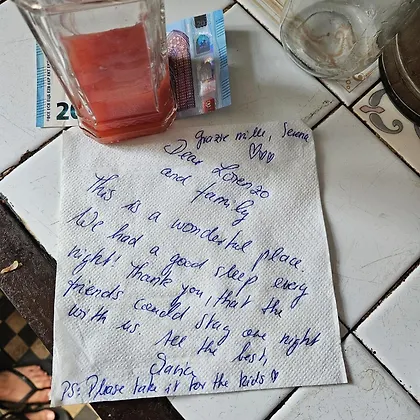 20
Grazie mille, Serena
♡♡♡
Dear Lorenzo
and family
This is a wonderful place.
We had a good sleep every
night! Thank you, that the
friends could stay one night
with us. All the best,
PS: Please take it for the kids ♡